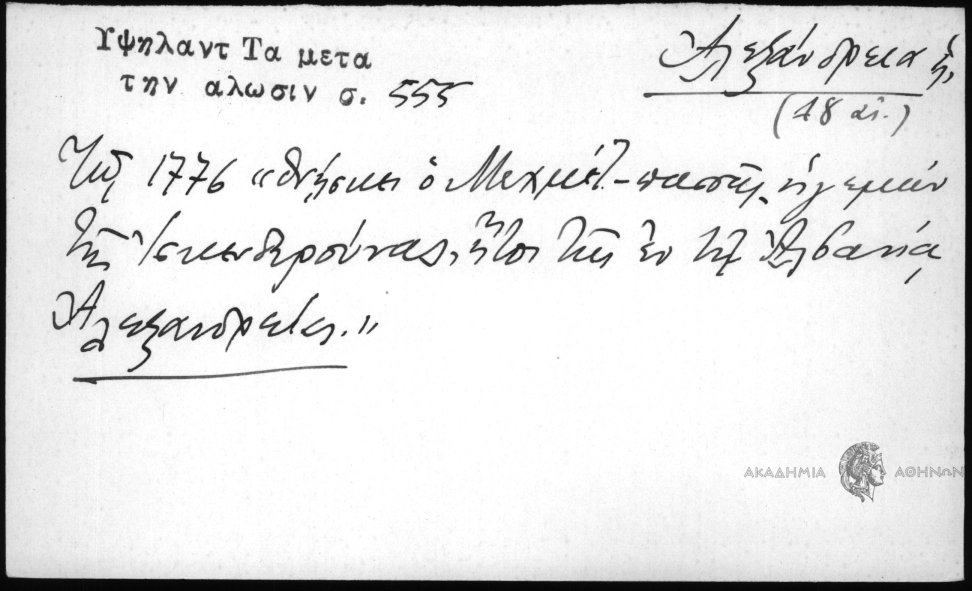 Υψηλαντ Τα μετα
την αλωσιν σ. 555
Ἀλεξάνδρεια ἡ,
(18 αἰ.)
Τῷ 1776 «θνήσκει ὁ Μεχμέτ-πασσᾶς, ἡγεμὼν
τῆς Ἰσκενδερούνας, ἤτοι τῆς ἐν τῇ Ἀλβανίᾳ
Ἀλεξανδρείας.»
ΑΚΑΔΗΜΙΑ ΑΘΗΝΩΝ